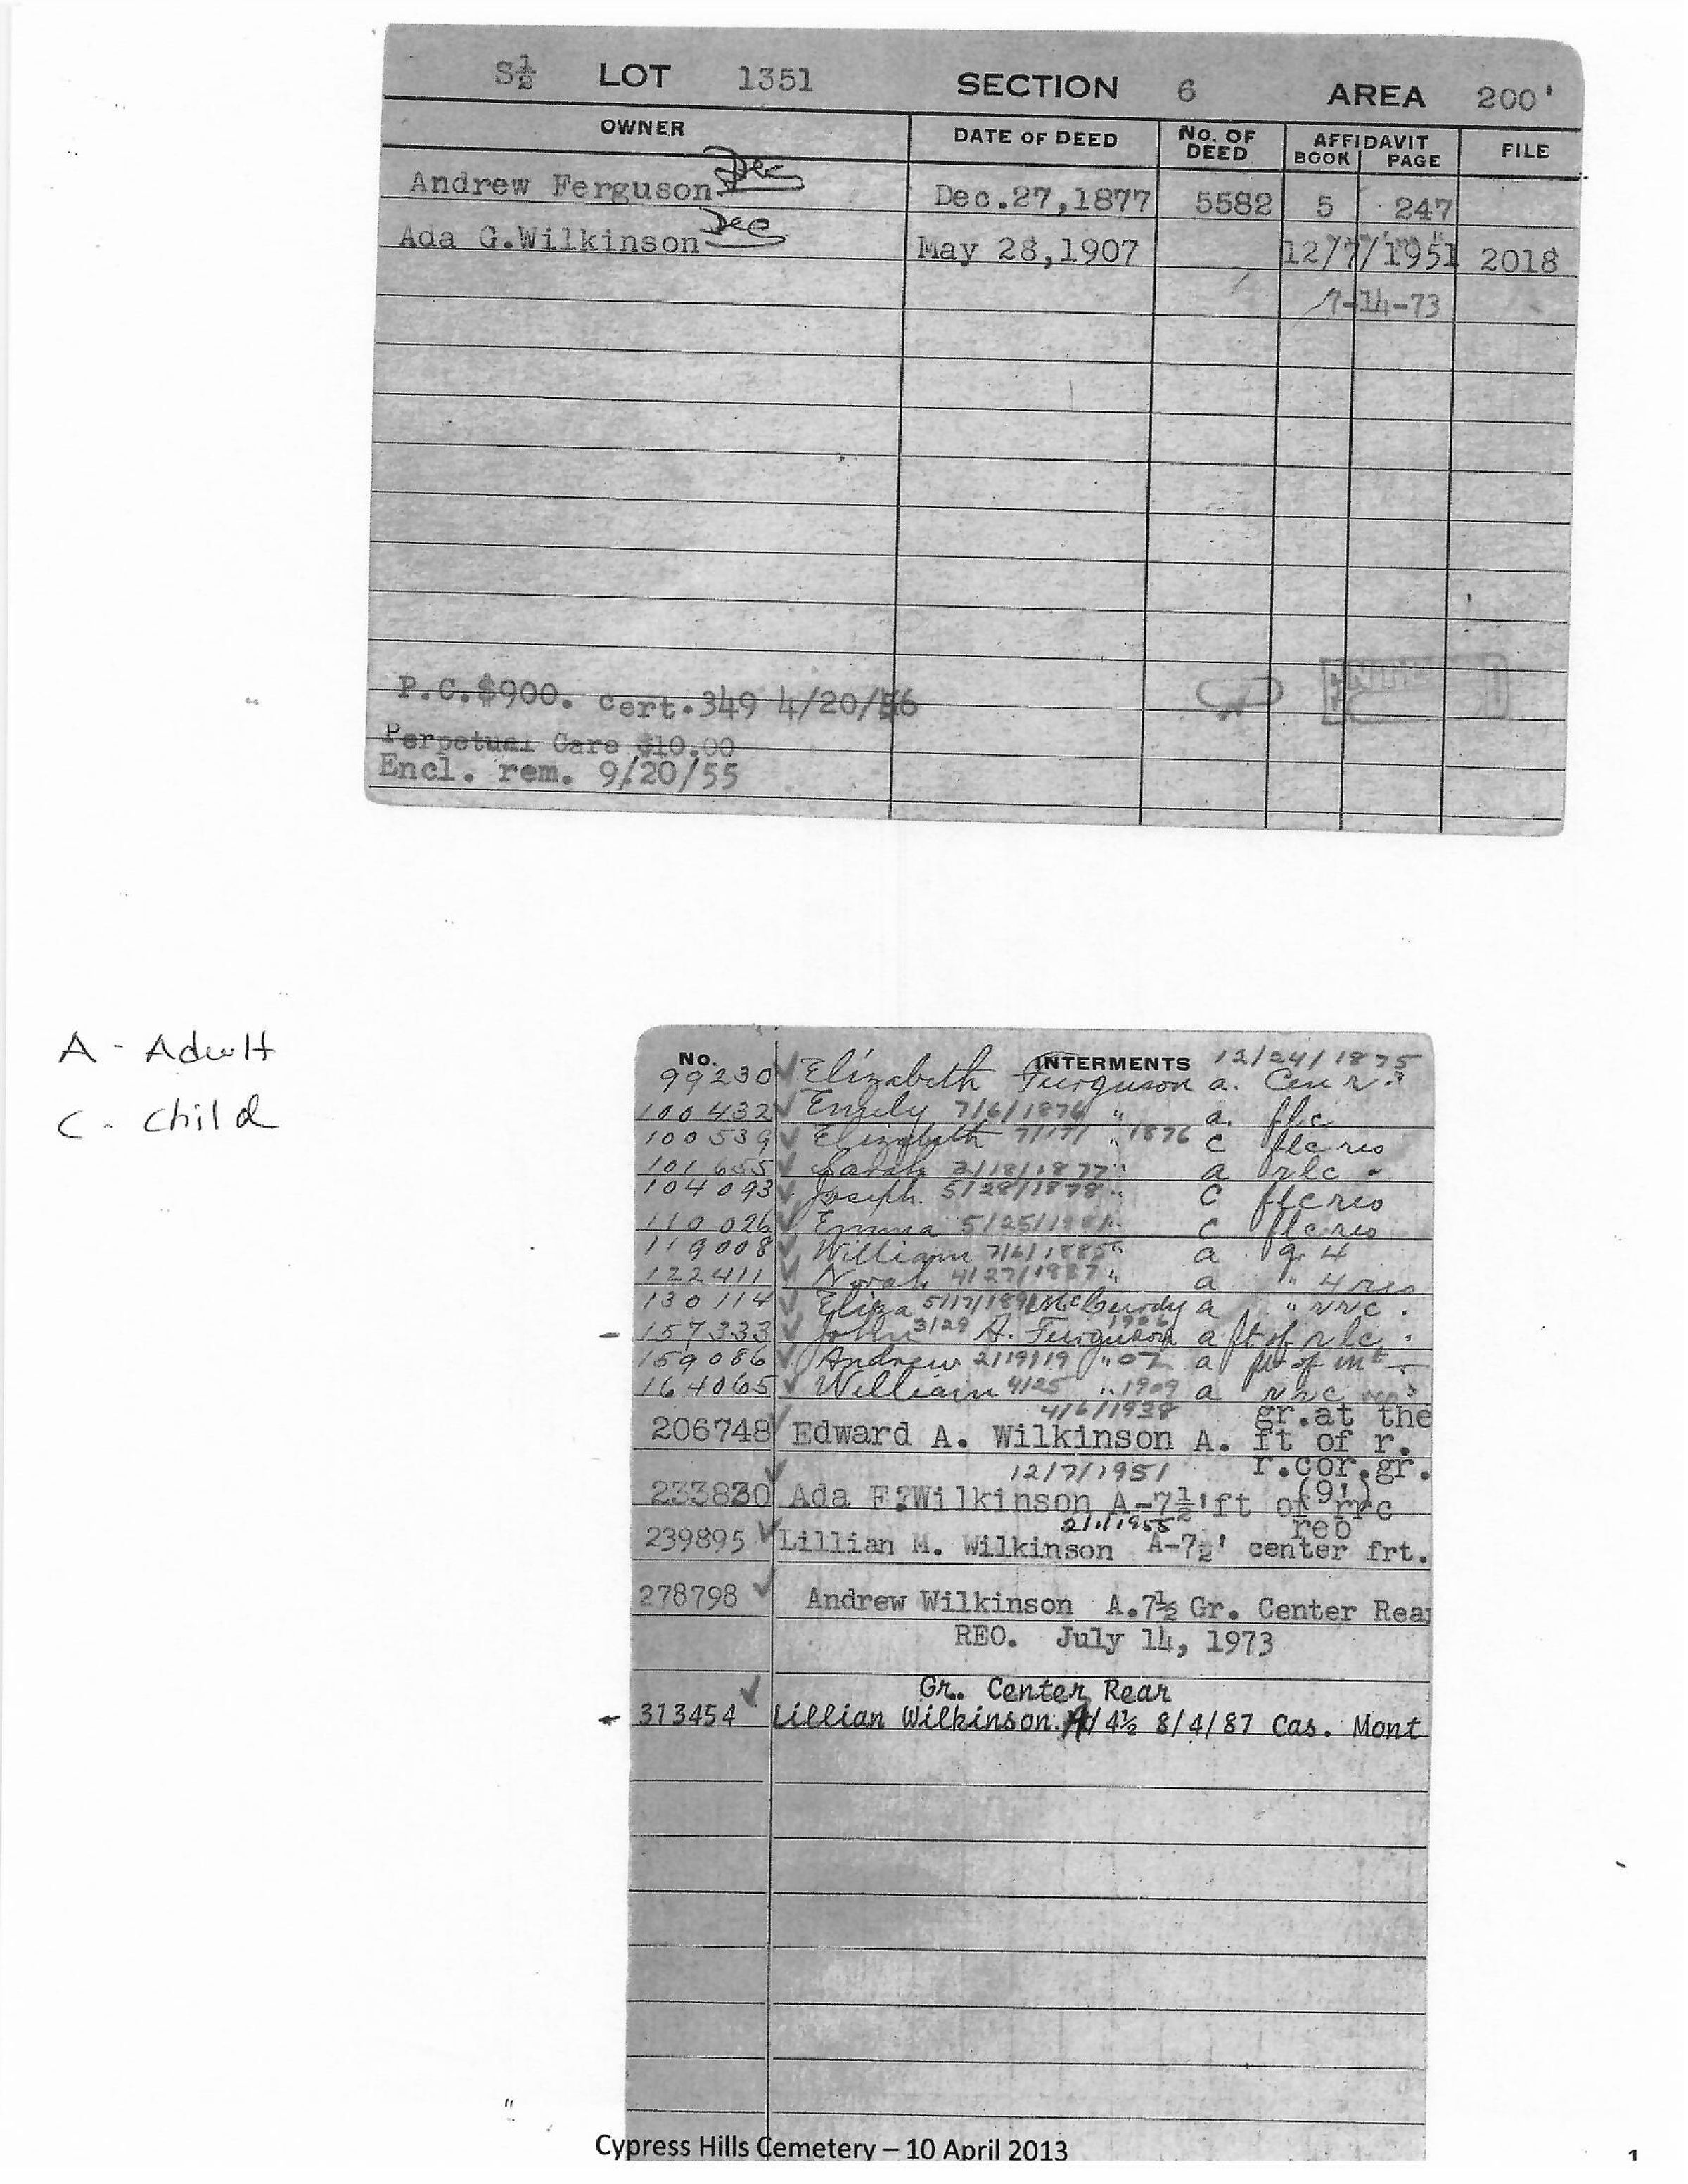 S½ LOT 1351 SECTION 6 AREA 200'
OWNER DATE OF DEED No. OF DEED AFFIDAVIT BOOK PAGE FILE
Andrew Ferguson Dec Dec.27,1877 5582 5 247
Ada G.Wilkinson Dec May 28,1907 12/7/1951 2018
7-14-73
P.C.$900. cert.349 4/20/56
Perpetual Care $10.00
Encl. rem. 9/20/55
ENTERED
A - Adult
C - Child
No. INTERMENTS 12/24/1875
99230 Elizabeth Ferguson a. Cen r.
100432 Emily 7/6/1876 " a. flc
100539 Elizabeth 7/17/ " 1876 C flc reo
101655 Sarah 2/18/1877 " a rlc
104093 Joseph 5/28/1878 " C flc reo
110026 Emma 5/25/1881 " C flc reo
119008 William 7/6/1885 " a gr 4
122411 Norah 4/27/1887 " a " 4 reo
130114 Eliza 5/17/1891 McCurdy a " rrc.
1906
157333 John 3/29 A. Ferguson a ft of rlc.
159086 Andrew 2/19/19 " 07 a ft of mt
164065 William 4/25 " 1909 a rrc
4/6/1938 gr.at the
206748 Edward A. Wilkinson A. ft of r.
12/7/1951 r.cor.gr.
(9')
233830 Ada F?Wilkinson A-7½'ft of rrc
2/1/1955 reo
239895 Lillian M. Wilkinson A-7½' center frt.
278798 Andrew Wilkinson A.7½ Gr. Center Rear
REO. July 14, 1973
Gr. Center Rear
313454 Lillian Wilkinson. A/ 4½ 8/4/87 Cas. Mont
Cypress Hills Cemetery – 10 April 2013
1